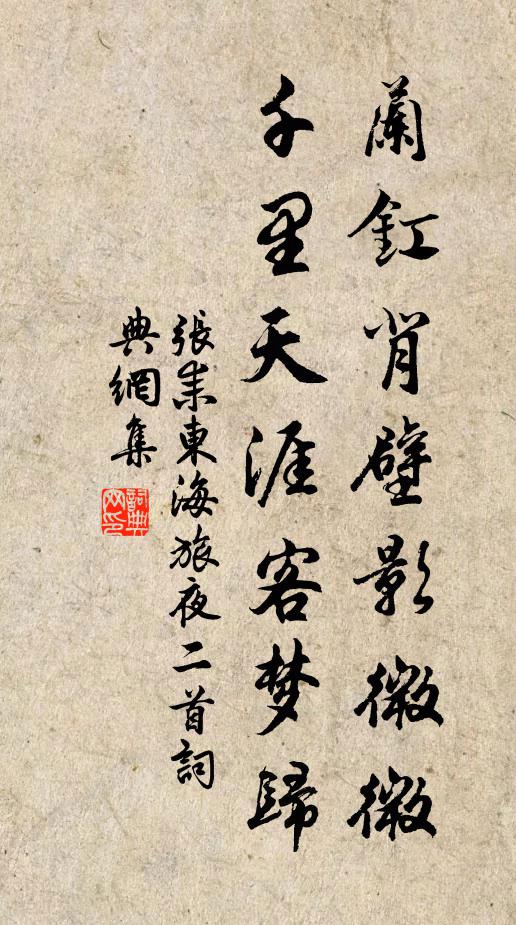 蘭釭背壁影微微
千里天涯客梦歸
張耒東海旅夜二首詞
典網集
詞典網印